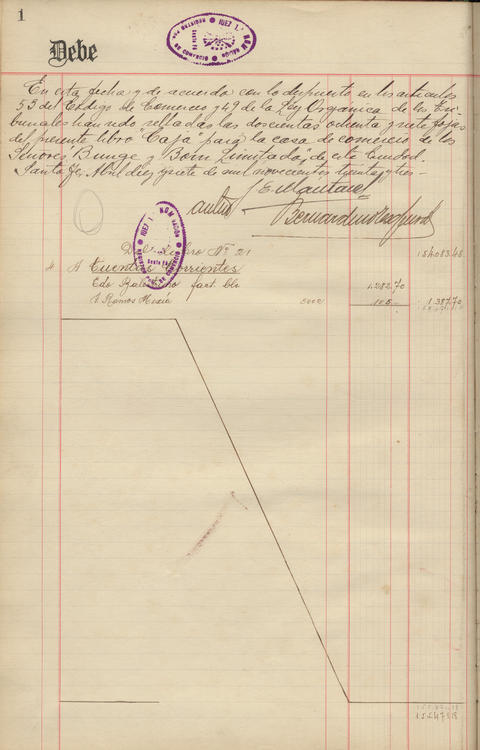 1
Debe
JUEZ 1.ª NOM
Santa Fé
DE COMERCIO
En esta fecha y de acuerdo con lo dispuesto en los artículos
53 del Código de Comercio y 49 de la Ley Orgánica de los Tri-
bunales han sido selladas las doscientas ochenta y siete fojas
del presente libro "Caja" para la casa de comercio de los
Señores Bunge y Born Limitada, de esta Ciudad.
Santa Fe, Abril diez y siete de mil novecientos treinta y tres.-
Del Libro Nº 21 154083.48
4 A Cuentas Corrientes
Edo fact. 1.282.70
Ramos Mexia 105.- 1.387.70